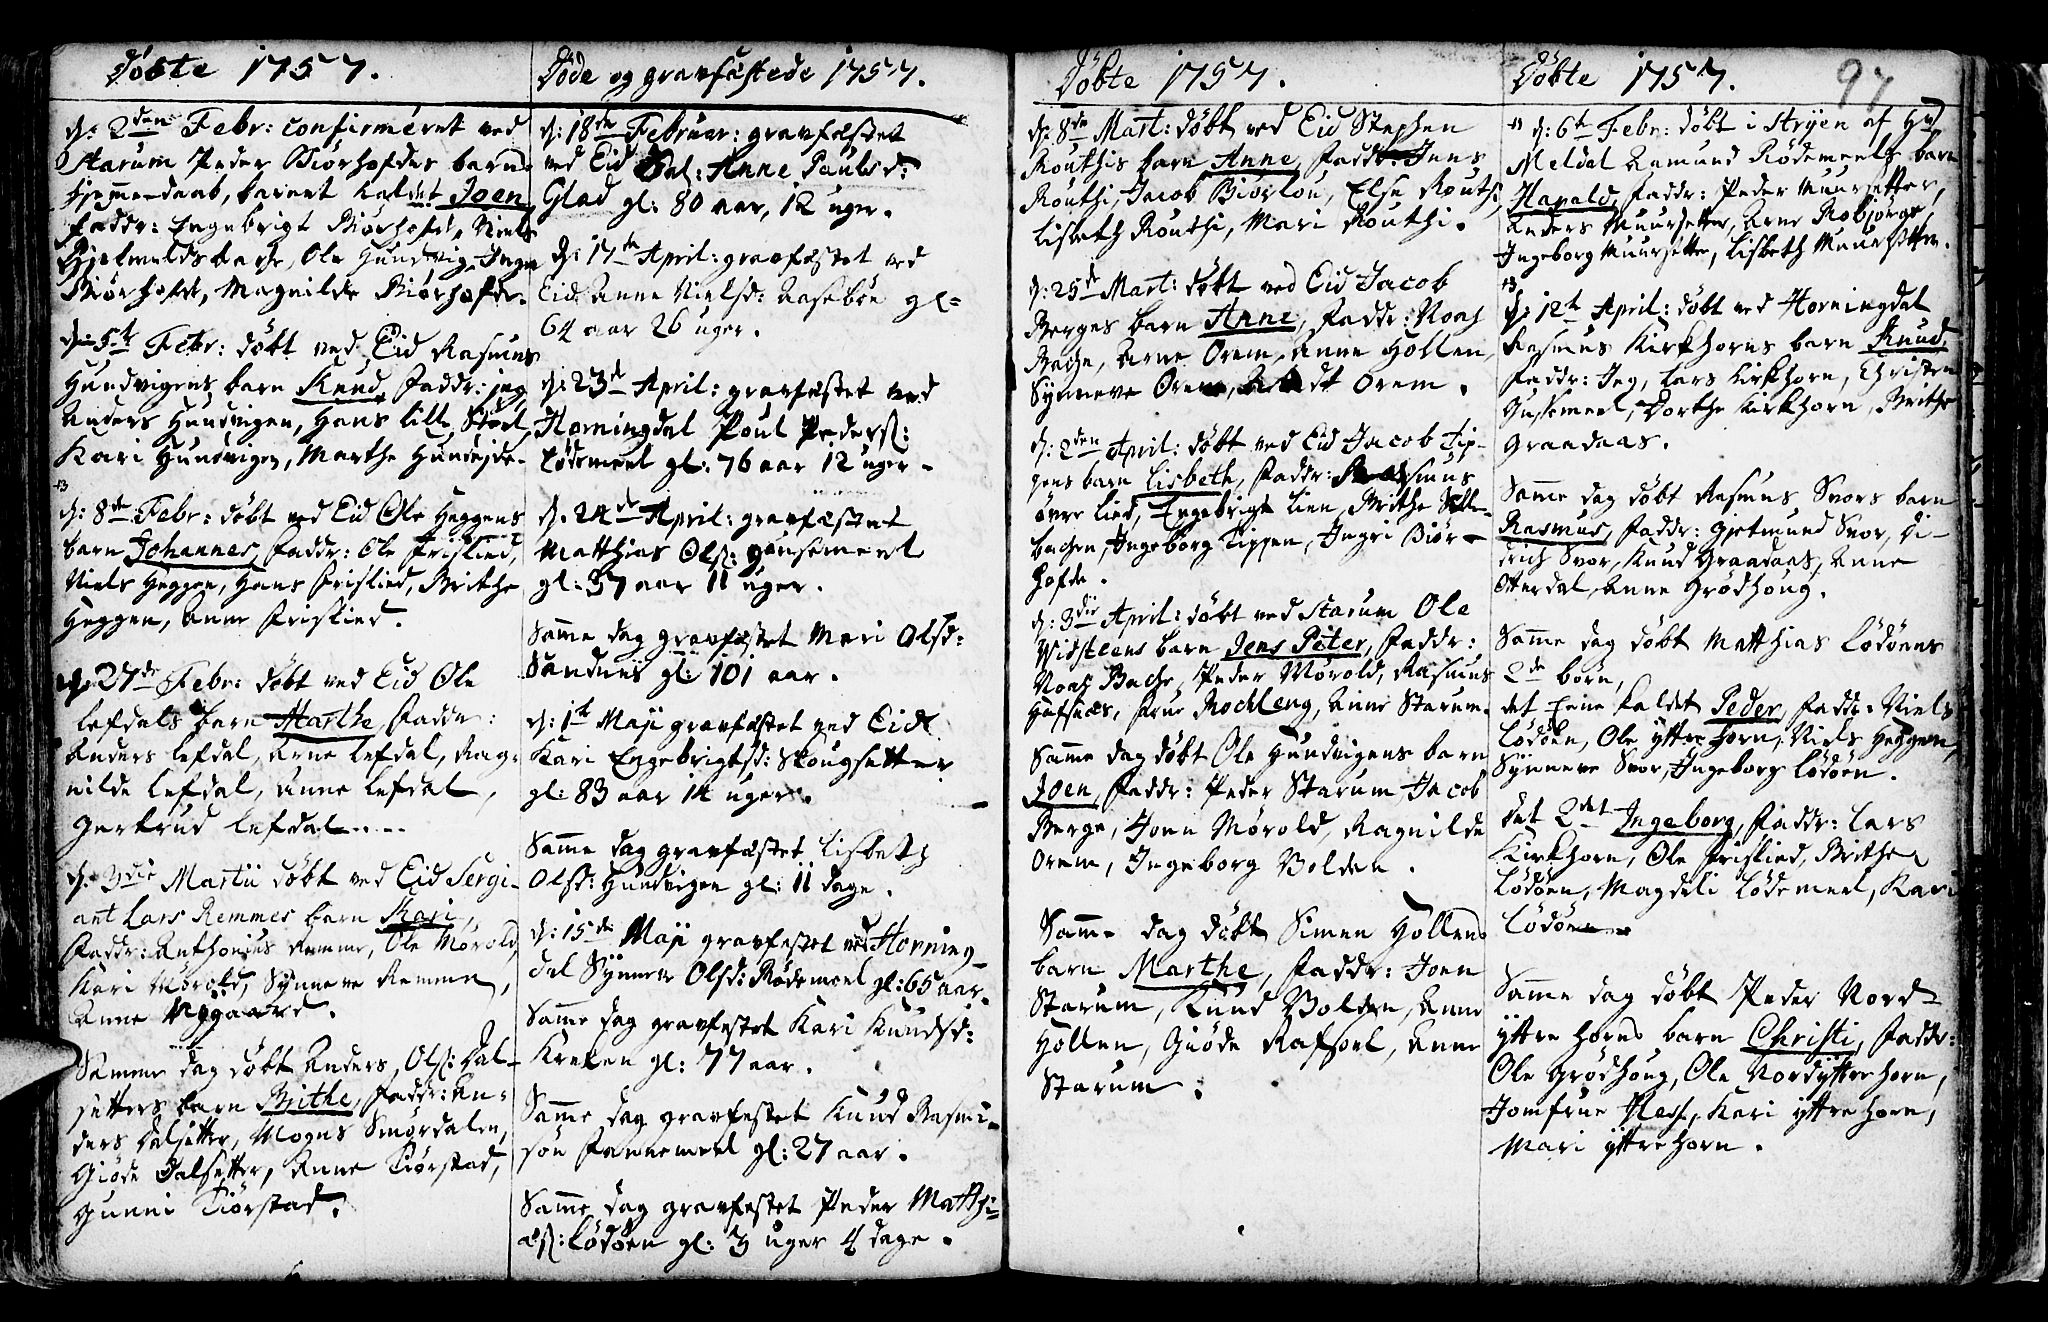 Döbte 1757.
d: 2den Febr: confirmeret ved
Starum Peder Biørhofdes barns
hiemmedaab, barnet kaldet Joen,
Faddr: Ingebrigt Biørhofde, Niels
Hielmelds bache, Ole Hundvig, Inger
Biørhofde, Magnilde Biørhofde.
d: 5te Febr: döbt ved Eid Rasmus
Hundvigens barn Knud, Faddr: jeg,
Anders Hundvigen, Hans lille Stoel,
Kari Hundvigen, Marthe Hundeide.
d: 8de Febr: döbt ved Eid Ole Heggens
barn Johannes, Faddr: Ole Frislied,
Niels Heggen, Hans Frislied, Brithe
Heggen, Anne Frislied.
d: 27de Febr: döbt ved Eid Ole
Lefdals barn Marthe, Faddr:
Anders Lefdal, Arne Lefdal, Rag-
nilde Lefdal, Anne Lefdal,
Gertrud Lefdal.
d: 3die Martii döbt ved Eid Sergi-
ant Lars Remmes barn Kari,
Faddr: Anthonius Remme, Ole Mørold,
Kari Mørold, Synneve Remme,
Anne Nygaard.
Samme dag döbt Anders Ols: Dal-
setters barn Brithe, Faddr: An-
ders Dalsetter, Mogns Smördalen,
Giöde Dalsetter, Anne Kiørstad,
Gunni Kiörstad.
Döde og gravfæstede 1757.
d: 18de Februar: gravfæstet
ved Eid Anne Paulsd:
Glad gl: 80 aar, 12 uger.
d: 17de April: gravfæstet ved
Eid Anne Nielsd: Aasebøe gl:
64 aar 26 uger.
d: 23de April: gravfæstet ved
Horningdal Poul Peders:
Lødemeel gl: 76 aar 12 uger.
d: 24de April: gravfæstet
Matthias Ols: Gausemeel
gl: 37 aar 11 uger.
Samme dag gravfæstet Mari Olsd:
Sandnes gl: 101 aar.
d: 1te Maji gravfæstet ved Eid
Kari Engebrigtsd: Skougsetter
gl: 83 aar 14 uger.
Samme dag gravfæstet Lisbeth
Olsd: Hundvigen gl: 11 dage.
d: 15de Maji gravfestet ved Horning-
dal Synneve Olsd: Rödemeel gl: 65 aar.
Samme dag gravfestet Kari Knudsd:
Kreken gl: 77 aar.
Samme dag gravfestet Knud Rasmu-
søn Fannemeel gl: 27 aar.
Samme dag gravfestet Peder Matthi-
æs: Lödöen gl: 3 uger 4 dage.
Döbte 1757.
d: 8de Mart: döbt ved Eid Stephen
Routhis barn Anne, Faddr: Jens
Routhi, Jacob Biørlou, Else Routhi,
Lisbeth Routhi, Mari Routhi.
d: 25de Mart: döbt ved Eid Jacob
Berges barn Anne, Faddr: Noah
Bache, Arne Orem, Anne Hollen,
Synneve Orem, Orem.
d: 2den April: döbt ved Eid Jacob Tip-
pens barn Lisbeth, Faddr: Rasmus
övre Lied, Engebrigt Lien, Brithe
bachen, Ingeborg Tippen, Ingri Biør-
hofde.
d: 3die April: döbt ved Starum Ole
Widsteens barn Jens Peter, Faddr:
Noah Bache, Peder Mørold, Rasmus
Hafsaas, Frue Rochleng, Anne Starum.
Samme dag döbt Ole Hundvigens barn
Joen, Faddr: Peder Starum Jacob
Berge, Joen Mørold, Ragnilde
Orem, Ingeborg Bolden.
Samme dag döbt Simen Hollens
barn Marthe, Faddr: Joen
Starum, Knud Bolden, Anne
Hollen, Giöde Rafsoel, Anne
Starum.
Döbte 1757.
97
d: 6te Febr: döbt i Stryen af Hr
Meldal Aamund Rödemeels barn
Harald, Faddr: Peder Muursetter,
Anders Muursetter, Arne Robjørge,
Ingeborg Muursetter, Lisbeth Muursetter.
d: 12te April: döbt ved Horningdal
Rasmus Kirkhorns barn Knud,
Faddr: Jeg, Lars Kirkhorn, Christen
Gusemeel, Dorthe Kirkhorn, Brithe
Graadaas.
Samme dag döbt Rasmus Svors barn
Rasmus, Faddr: Gietmund Svor, Di-
drich Svor, Knud Graadaas, Anne
Otterdal, Anne Grödhoug.
Samme dag döbt Matthias Lödöens
2de börn,
det Eene kaldet Peder, Faddr: Niels
Lödöen, Ole yttrehorn, Niels Heggen,
Synneve Svor, Ingeborg Lödöen.
det 2det Ingeborg, Faddr: Lars
Kirkhorn, Ole Frislied, Brithe
Lödöen, Magdeli Lödemeel, Kari
Lödöen.
Samme dag döbt Peder Nord
yttre horns barn Christi, Faddr:
Ole Grödhoug, Ole Nordyttrehorn,
Jomfrue Hess, Kari yttrehorn,
Mari yttrehorn.